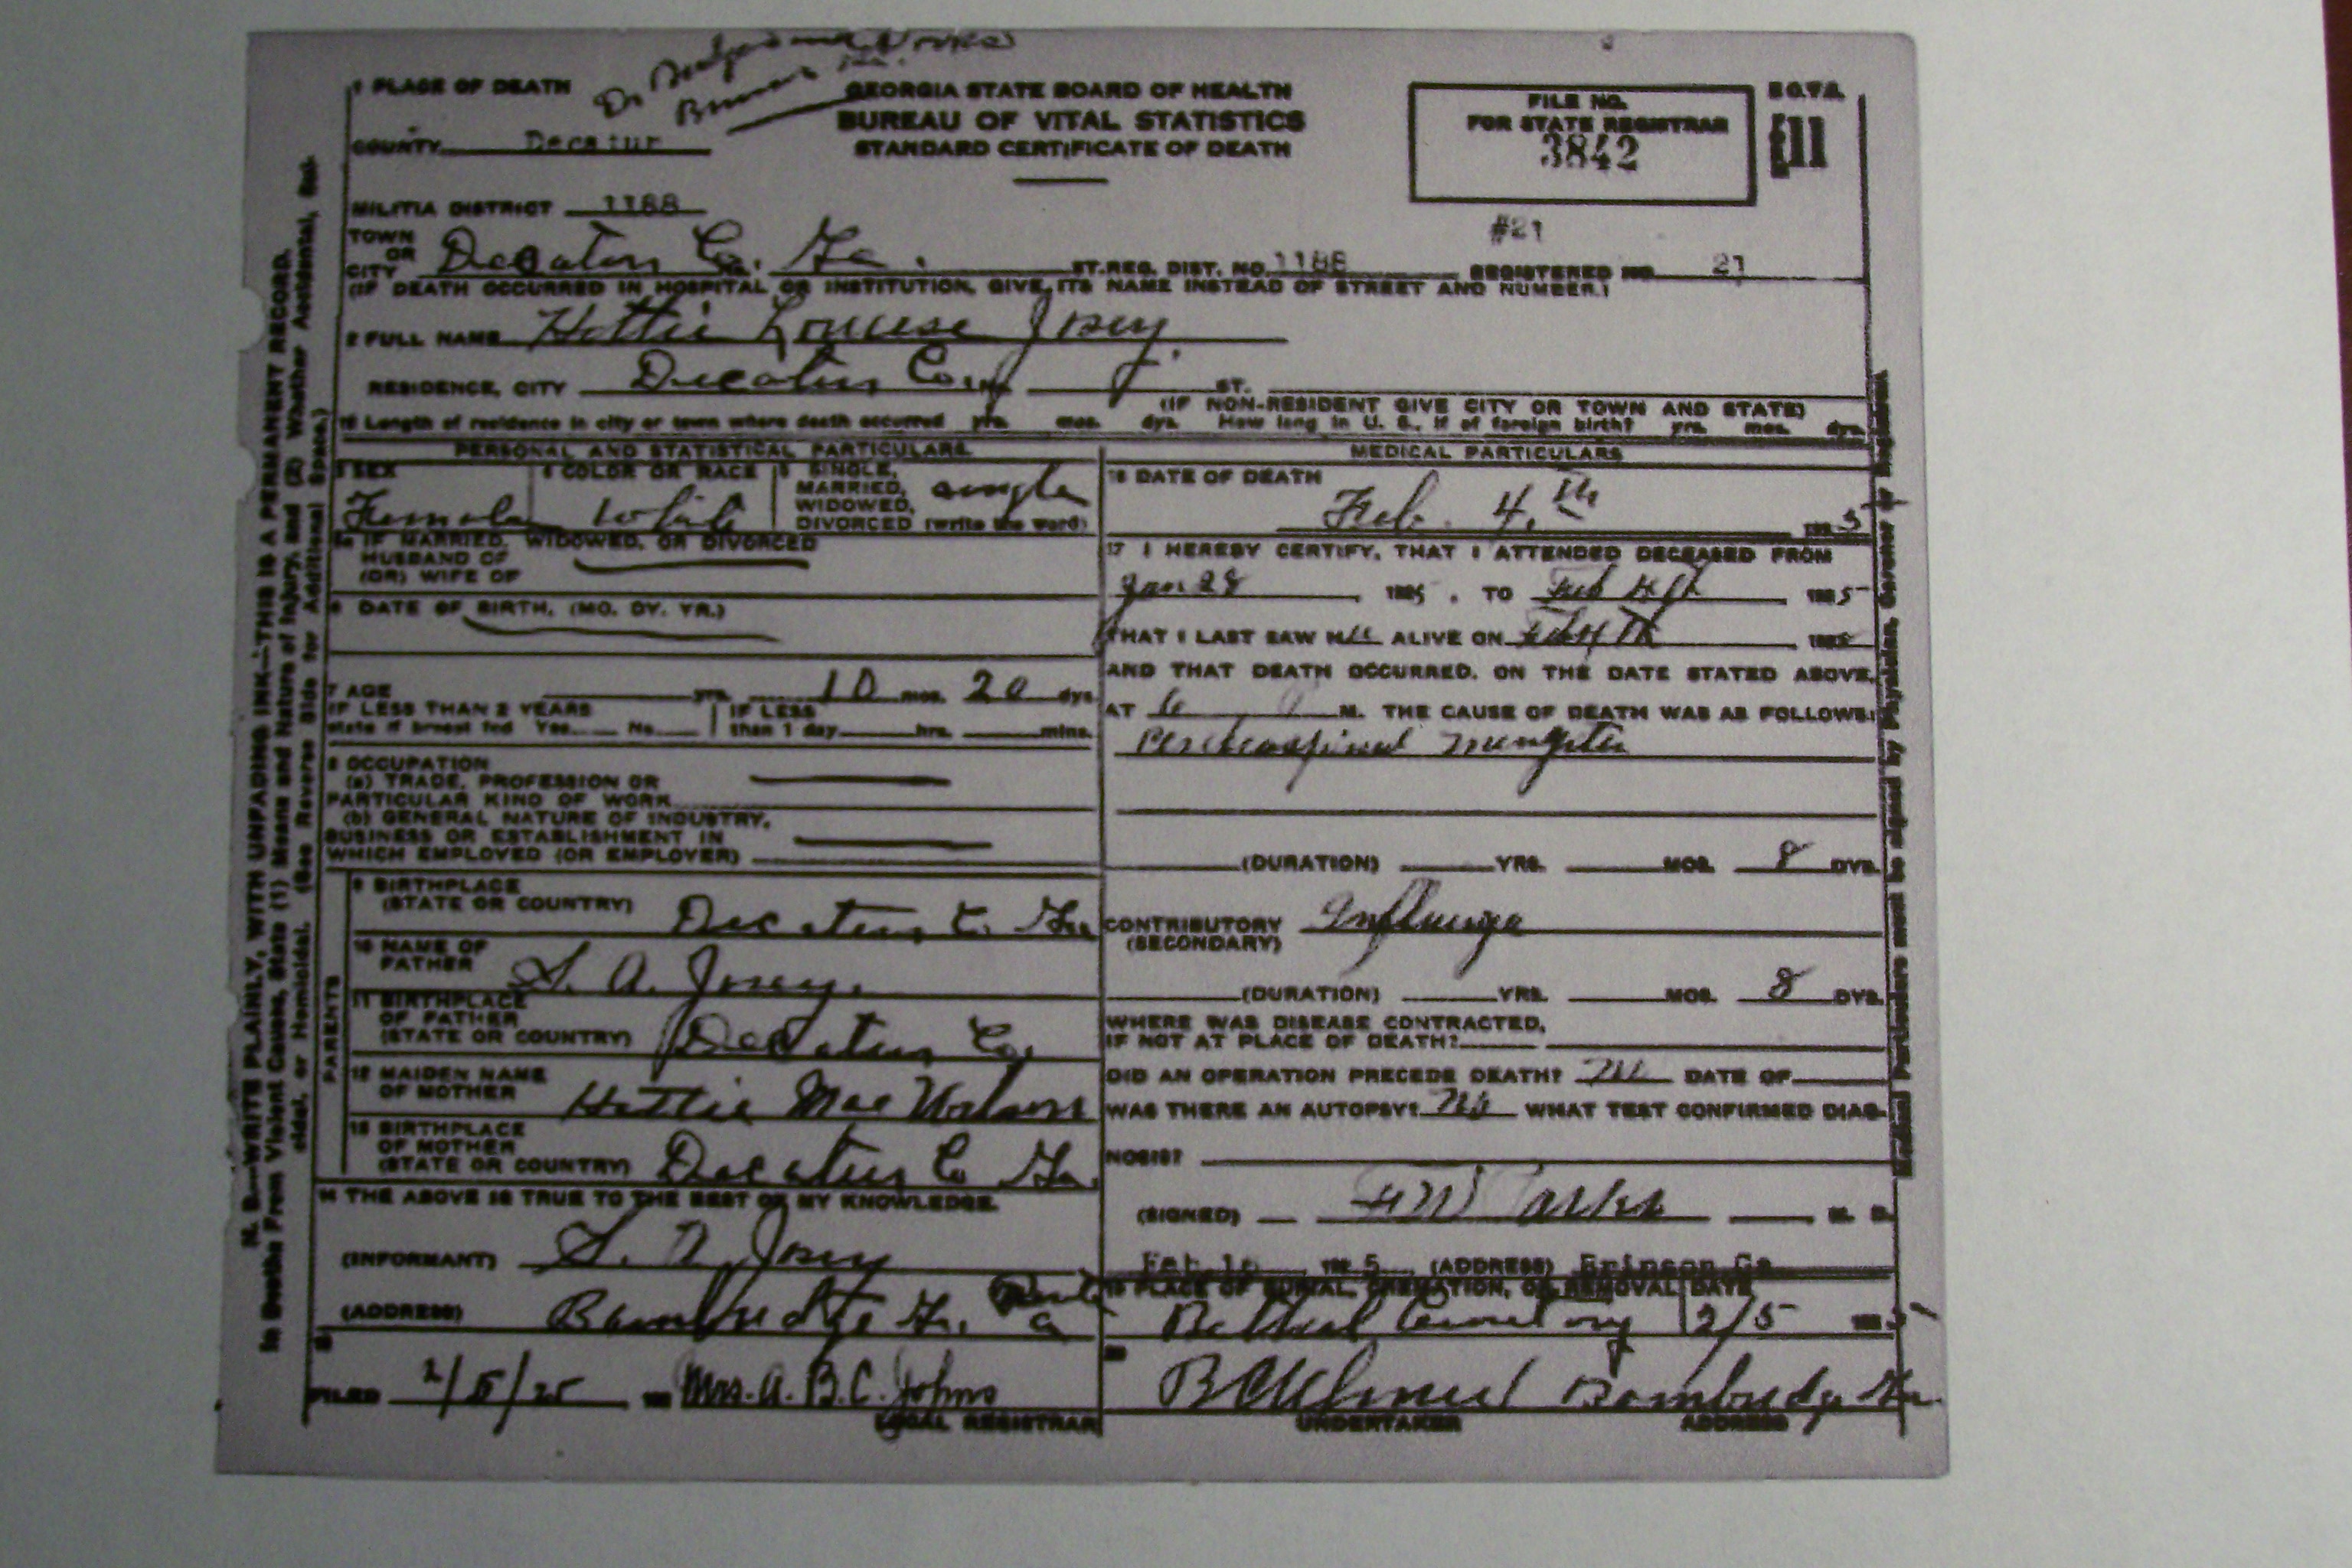 1 PLACE OF DEATH
GEORGIA STATE BOARD OF HEALTH
BUREAU OF VITAL STATISTICS
STANDARD CERTIFICATE OF DEATH
FILE NO.
FOR STATE REGISTRAR
3842
COUNTY Decatur
MILITIA DISTRICT 1188
#21
TOWN OR CITY Decatur Co. Ga. ST. REG. DIST. NO. 1188 REGISTERED NO. 21
(IF DEATH OCCURRED IN HOSPITAL OR INSTITUTION, GIVE ITS NAME INSTEAD OF STREET AND NUMBER.)
2 FULL NAME Hattie Louise Josey
RESIDENCE, CITY Decatur Co. ST.
(IF NON-RESIDENT GIVE CITY OR TOWN AND STATE)
Length of residence in city or town where death occurred yrs. mos. dys. How long in U. S., if of foreign birth? yrs. mos. dys.
PERSONAL AND STATISTICAL PARTICULARS
3 SEX Female
4 COLOR OR RACE White
5 SINGLE, MARRIED, WIDOWED, DIVORCED (write the word) single
5a IF MARRIED, WIDOWED, OR DIVORCED
HUSBAND OF
(OR) WIFE OF
6 DATE OF BIRTH, (MO. DY. YR.)
7 AGE yrs. 10 mos. 20 dys.
IF LESS THAN 2 YEARS
state if breast fed Yes No
IF LESS
than 1 day hrs. mins.
8 OCCUPATION
(a) TRADE, PROFESSION OR
PARTICULAR KIND OF WORK
(b) GENERAL NATURE OF INDUSTRY,
BUSINESS OR ESTABLISHMENT IN
WHICH EMPLOYED (OR EMPLOYER)
9 BIRTHPLACE
(STATE OR COUNTRY) Decatur Co. Ga.
PARENTS
10 NAME OF
FATHER S. A. Josey.
11 BIRTHPLACE
OF FATHER
(STATE OR COUNTRY) Decatur Co.
12 MAIDEN NAME
OF MOTHER Hattie Mae Wilson
13 BIRTHPLACE
OF MOTHER
(STATE OR COUNTRY) Decatur Co Ga.
14 THE ABOVE IS TRUE TO THE BEST OF MY KNOWLEDGE.
(INFORMANT) S. A. Josey
(ADDRESS) Bainbridge Ga.
FILED 2/5/25 Mrs. A. B. C. Johns
LOCAL REGISTRAR
MEDICAL PARTICULARS
16 DATE OF DEATH
Feb. 4th 5
17 I HEREBY CERTIFY, THAT I ATTENDED DECEASED FROM
Jan 28 1925, TO Feb 4th 1925
THAT I LAST SAW her ALIVE ON Feb 4th 1925
AND THAT DEATH OCCURRED, ON THE DATE STATED ABOVE,
AT 6 P M. THE CAUSE OF DEATH WAS AS FOLLOWS:
(DURATION) YRS. MOS. 8 DYS.
CONTRIBUTORY Influenza
(SECONDARY)
(DURATION) YRS. MOS. 8 DYS.
WHERE WAS DISEASE CONTRACTED,
IF NOT AT PLACE OF DEATH?
DID AN OPERATION PRECEDE DEATH? No DATE OF
WAS THERE AN AUTOPSY? No WHAT TEST CONFIRMED DIAG-
NOSIS?
(SIGNED) M. D.
Feb 16 192 5 (ADDRESS) Brinson Ga
19 PLACE OF BURIAL, CREMATION, OR REMOVAL DATE
Bethel Cemetery 2/5
20
Bainbridge Ga.
UNDERTAKER ADDRESS
N. B.—WRITE PLAINLY, WITH UNFADING INK—THIS IS A PERMANENT RECORD.
In Deaths From Violent Causes, State (1) Means and Nature of Injury, and (2) Whether Accidental, Sui-
cidal, or Homicidal. (See Reverse Side for Additional Space.)
Medical Particulars must be signed by Physician, Coroner or Registrar.